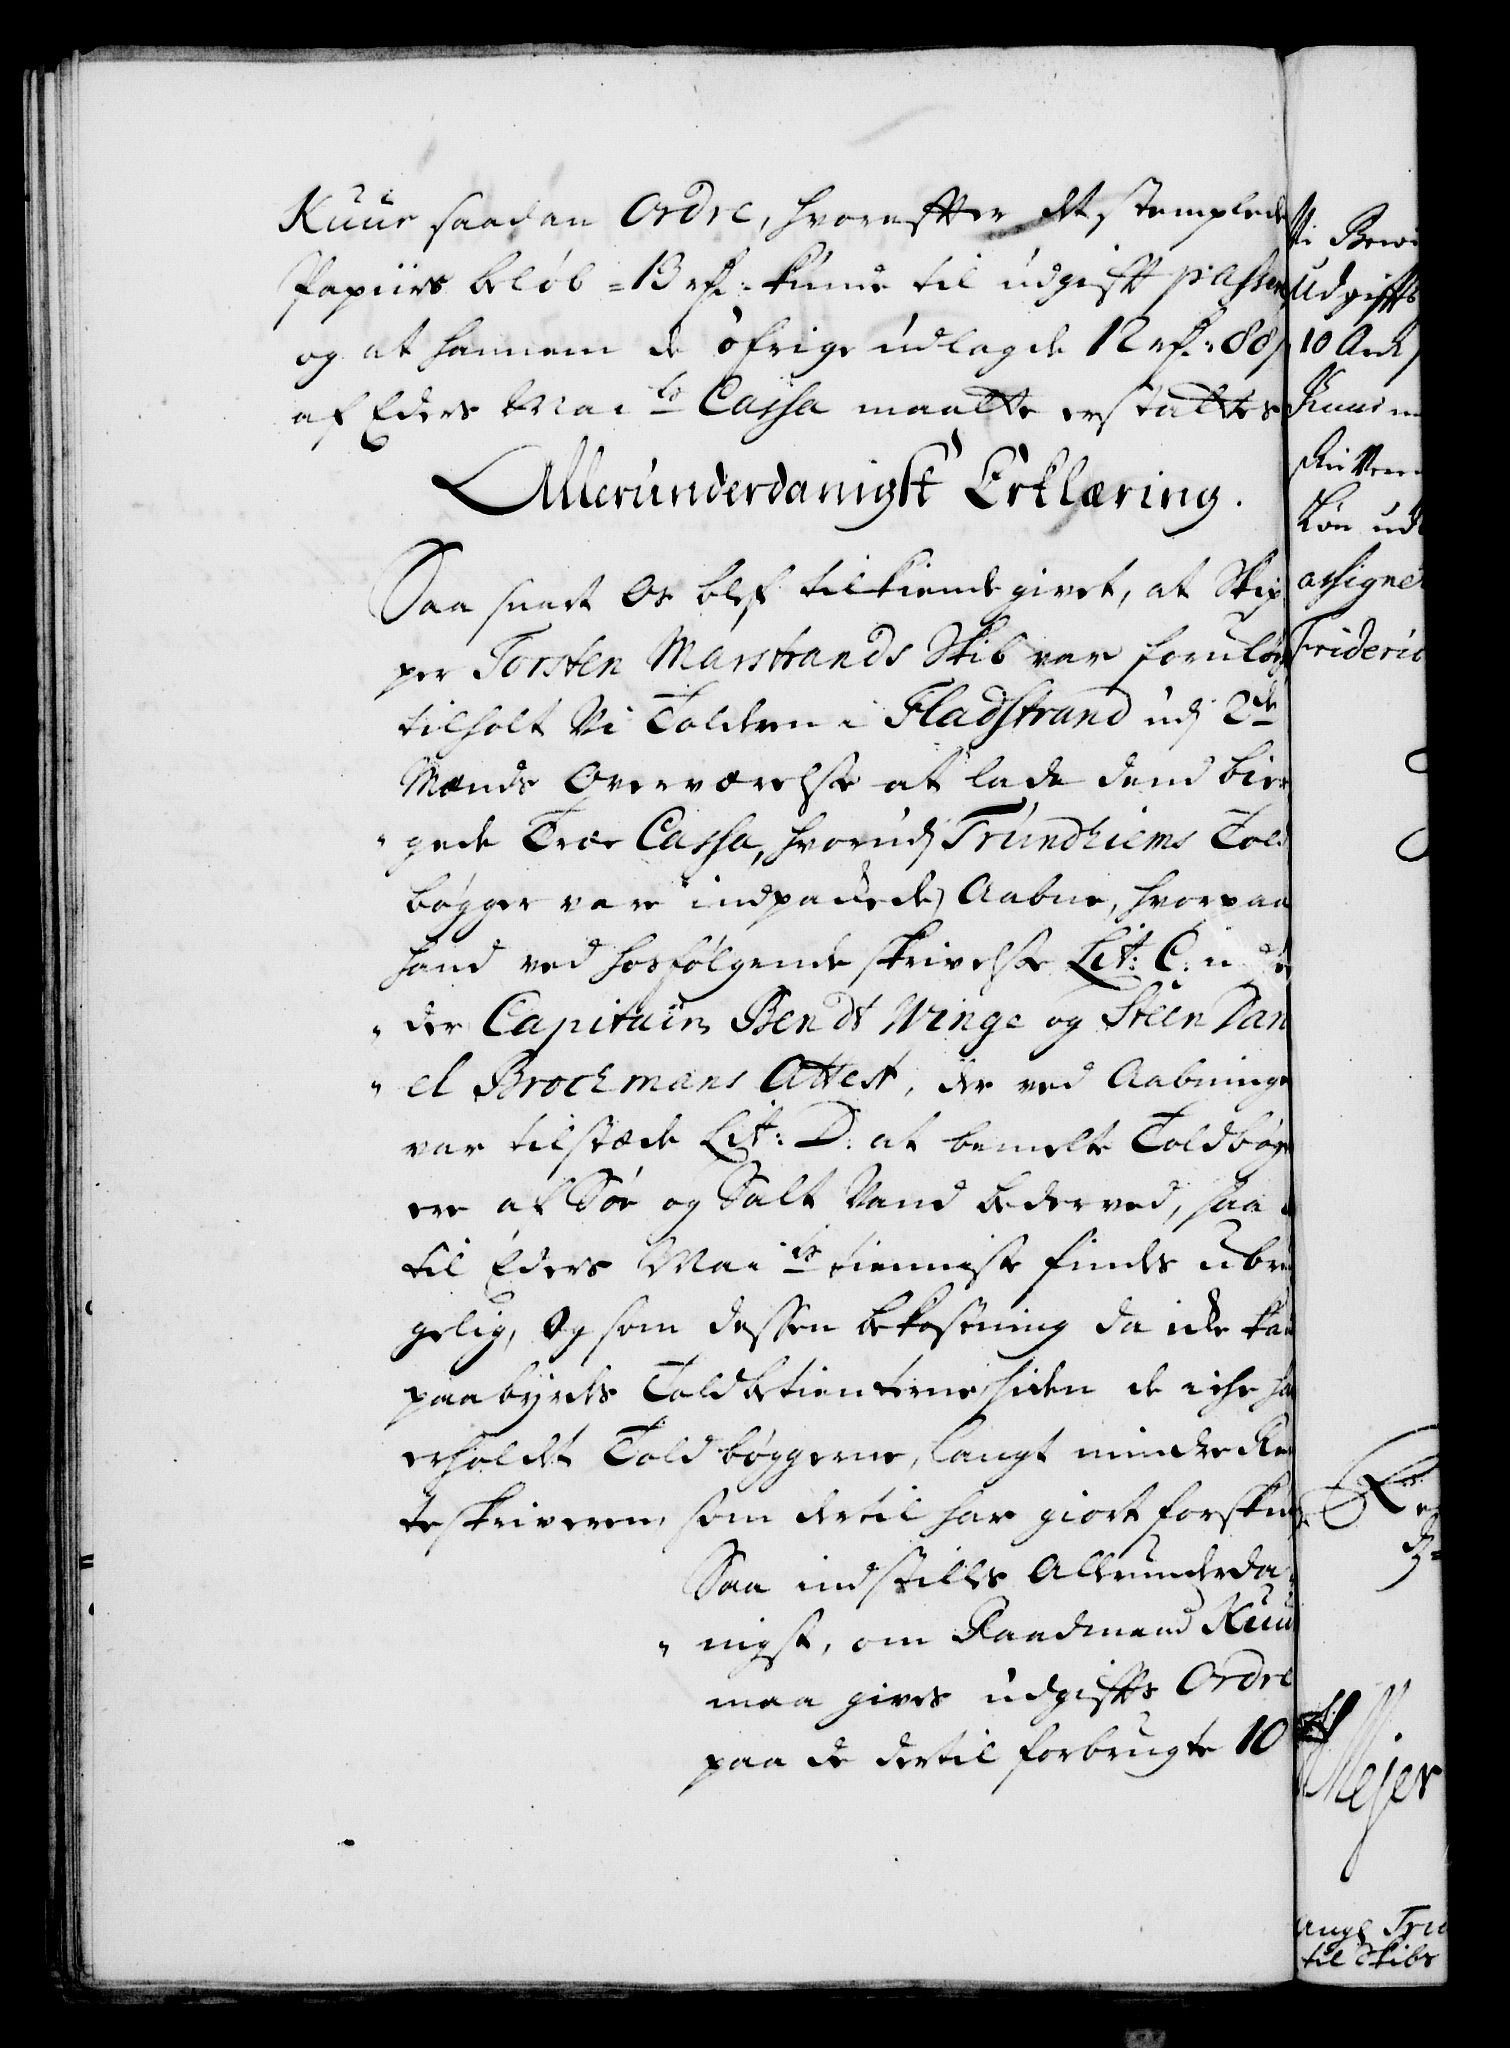 Kuur saadan Ordre, hvorefter det stemplede
Papiirs beløb =13 rd: kunde til udgift passere
og at hannem de øfrige udlagde 12 rd: 88 s
af Eders Mai ts Cassa maatte erstattes
Allerunderdanigst Erklæring.
Saa snart Os blef tilkiende givet, at Skip
per Torsten Marstrands Skib var foruløk
tilholt Vi Tolderen i Fladstrand udj 2de
Mænds Overværelse at lade dend bier
gede Træe Cassa, hvorudj Trundhiems Told
bøgger vare indpackede, Aabne, hvorpaa
hand ved hosfølgende skrivelse Lit: C:
der Capitain Bendt Winge og Steen Dan
el Brochmans Attest, der ved Aabninge
var tilstæde Lit: D: at bemelte Toldbøge
ere af Søe og Salt Vand bederved, saa
til Eders Mai ts tienniste findes ubru
gelig, Og som dessen bekostning da icke kan
paabyrdes Toldbetienterne, siden de icke ha
erholdet Toldbøggerne, langt mindre Ren
teskriveren, som dertil har giort forskud
Saa indstilles Allerunderda
nigst, om Raadmand Kuur
maa gives udgifts Ordre
paa de dertil forbrugte 10
Udgiffts
10 Ark
Kuur
Skriver
Løn
assigner
Frideric
Mejer
ang: Tru
til Skibs